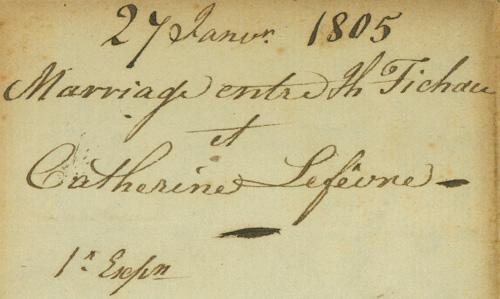 27 Janvr. 1805
Marriage entre Jh Fichau
et
Catherine Lefêvre
1r. Expn